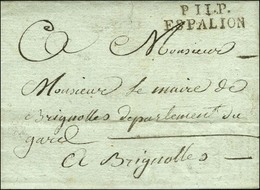 P 11 P.
ESPALION
A Monsieur
Monsieur le maire de
Brignolles departement du
gard
A Brignolles